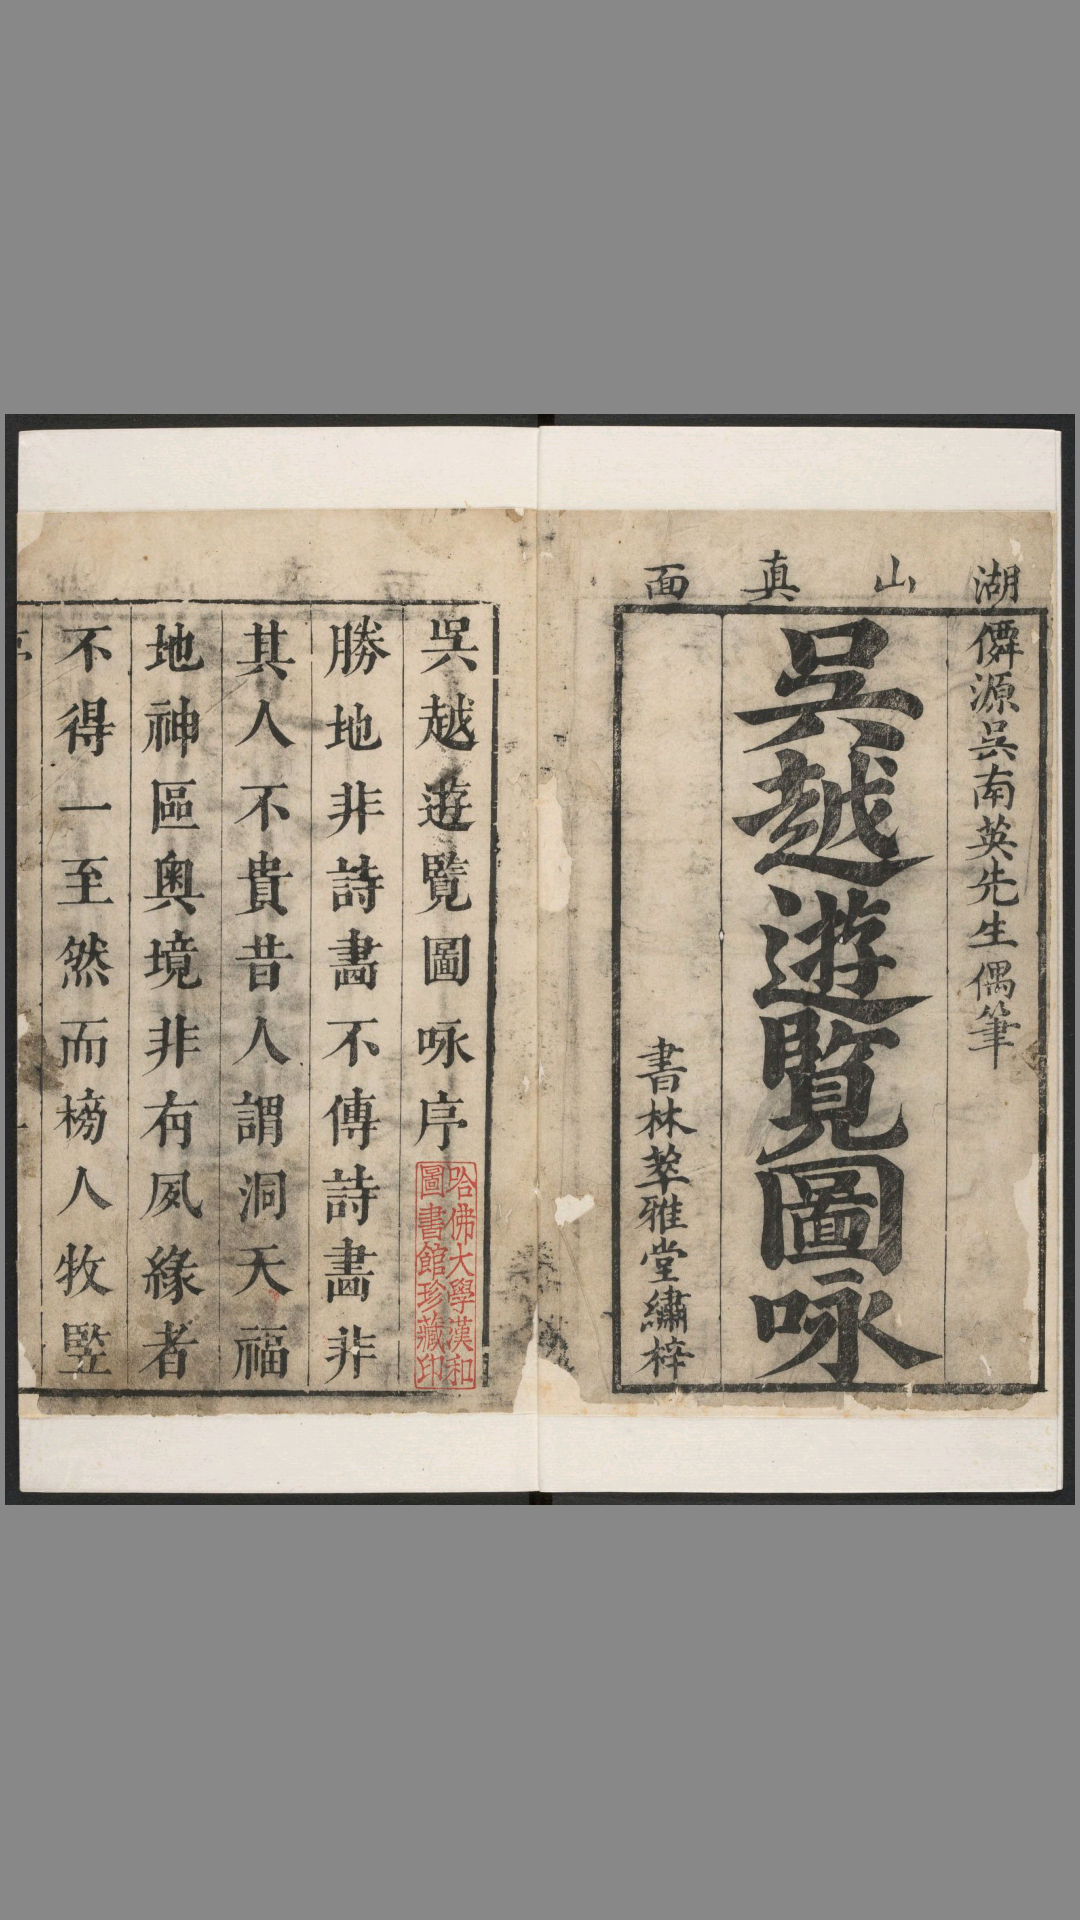 湖山真面
僲源吳南英先生偶筆
吳越遊覽圖咏
書林萃雅堂繡梓
吳越遊覽圖咏序
哈佛大學漢和
圖書館珍藏印
勝地非詩畵不傳詩畵非
其人不貴昔人謂洞天福
地神區奧境非有夙緣者
不得一至然而榜人牧竪